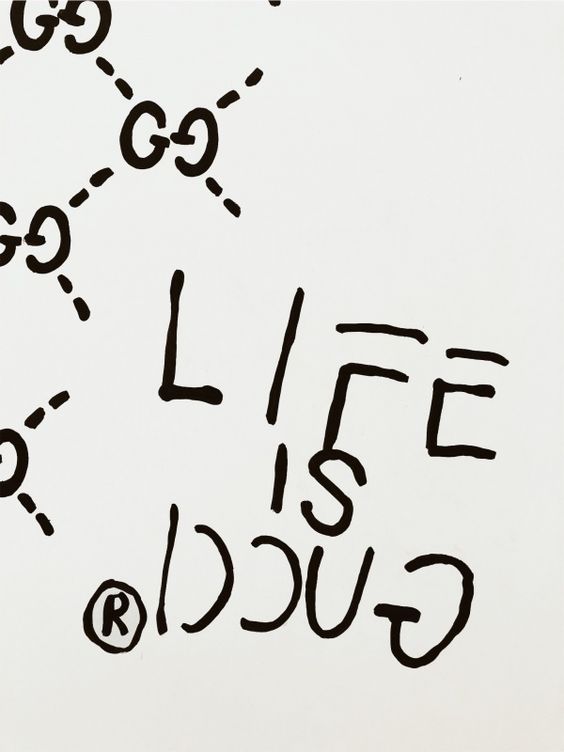 GG
GG
GG
LIFE
IS
GUCCI ®